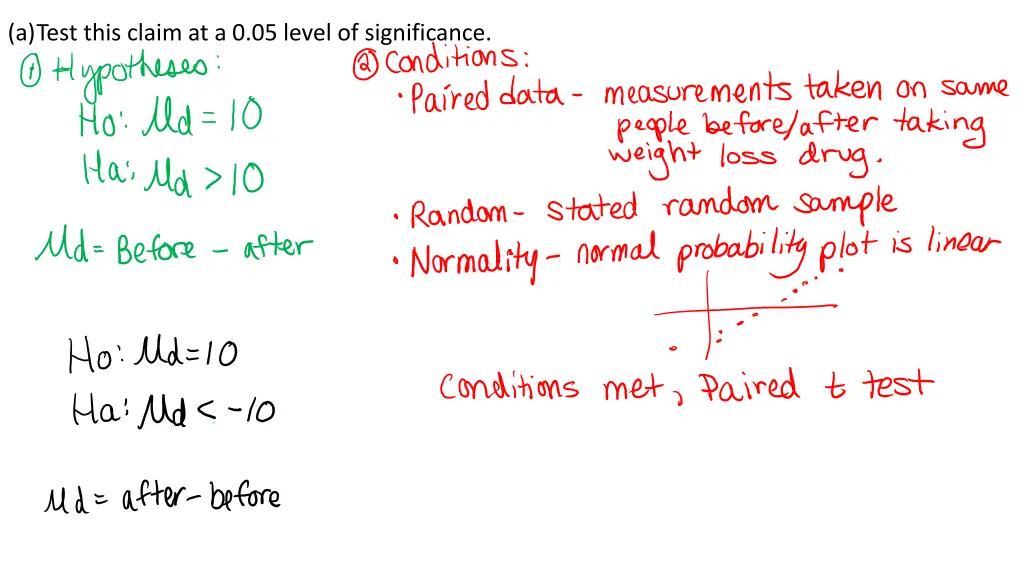 (a)Test this claim at a 0.05 level of significance.
① Hypotheses:
Ho: μd = 10
Ha: μd > 10
μd = Before - after
Ho: μd = 10
Ha: μd < -10
μd = after - before
② Conditions:
· Paired data - measurements taken on same
people before/after taking
weight loss drug.
· Random - stated random sample
· Normality - normal probability plot is linear
Conditions met, Paired t test